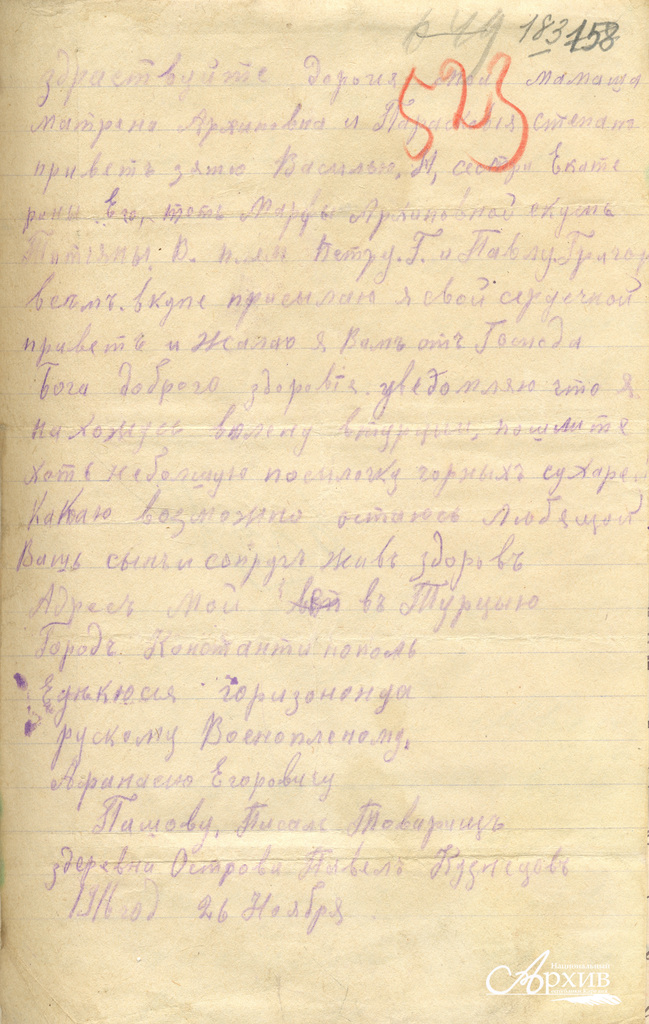 649 183 158
523
здраствуйте дорогия мои мамаша
Матрена Архиповна и Парасковия степан
приветъ зятю Василью, И, сестре Екате
рены Его, теть Марфы Архиповной
В. Петру. Г. и Павлу. Григор
всемъ вкупе присылаю я свой сердечной
приветъ и желаю я Вамъ отъ Господа
Бога доброго здоровiя. уведомляю что я
нахожусь вплену втурцыи, пошлите
хоть небольшую посилочку чорныхъ сухарей
какаю возможно остаюсь любящой
Вашъ сынъ и супругъ живъ здоровъ
Адресъ мой въ Турцыю
Городъ Константинополь
горизононда
рускому Военопленому,
Афанасию Егоровичу
Пашову, Писалъ Товарищъ
здеревни Острова Павелъ Кузнецовъ
1916 год 26 Ноября
Национальный
Архив